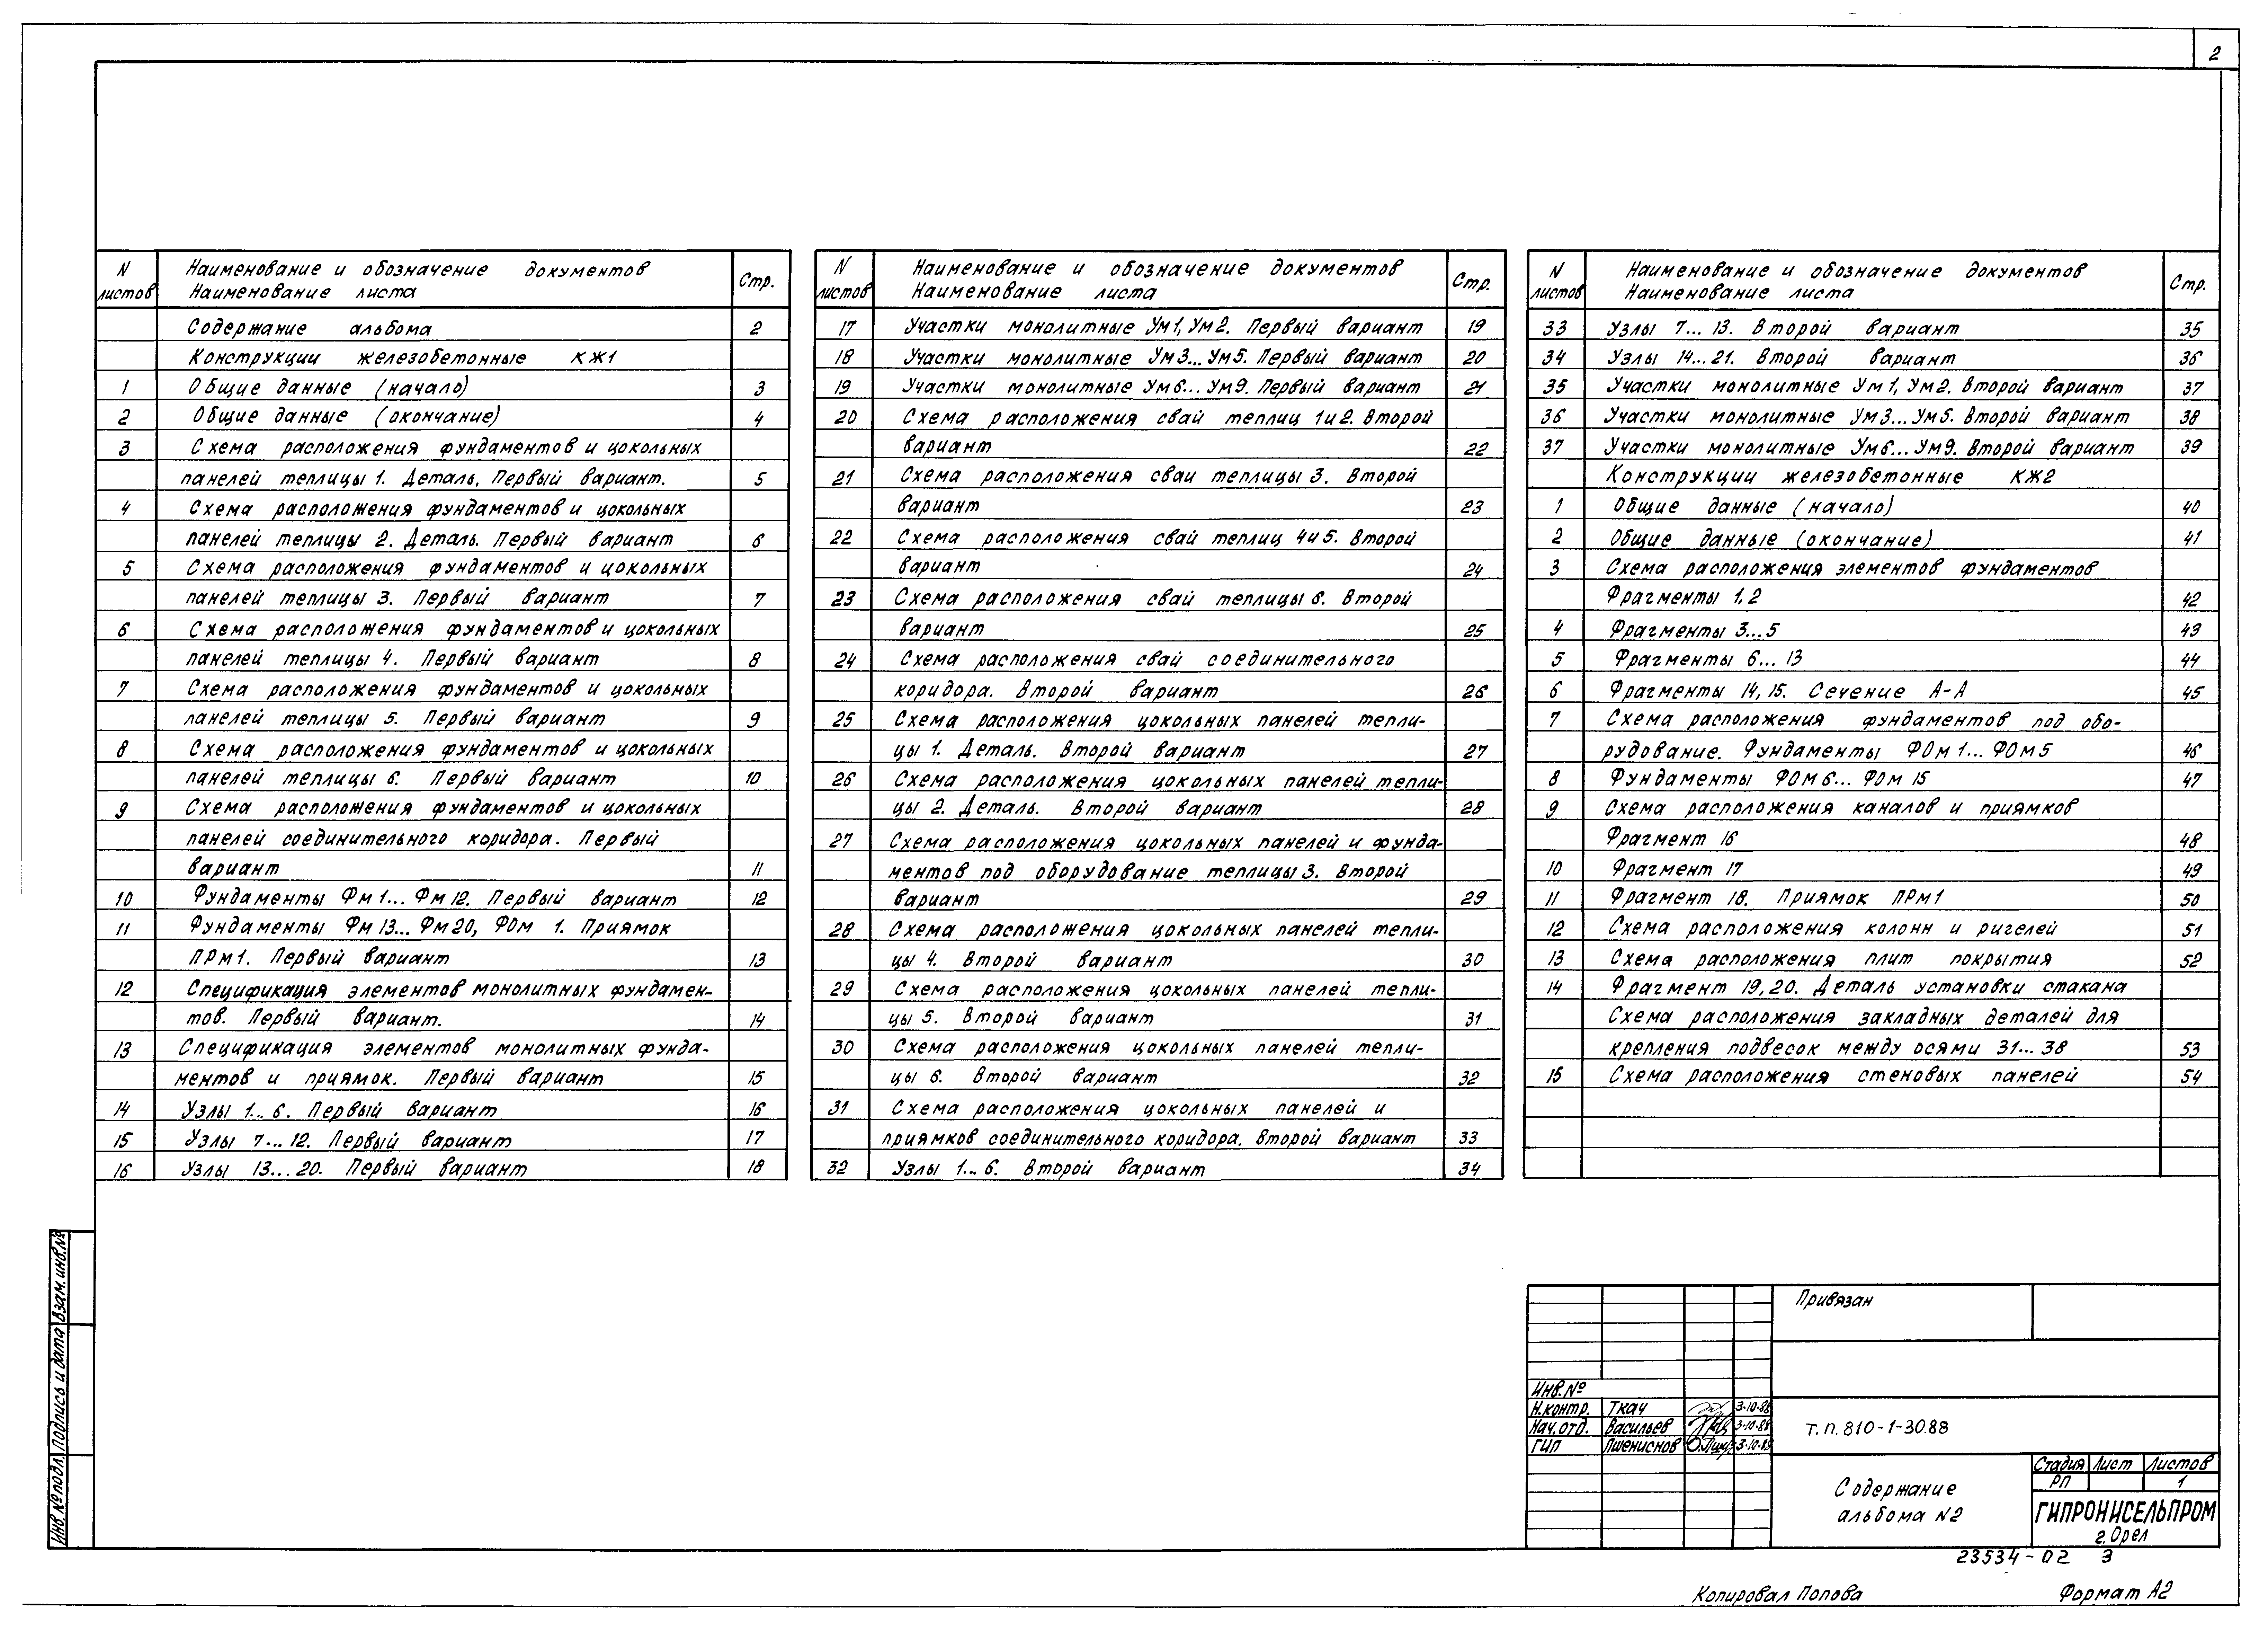 2
N листов Наименование и обозначение документов Наименование листа Стр.
Содержание альбома 2
Конструкции железобетонные КЖ1
1 Общие данные (начало) 3
2 Общие данные (окончание) 4
3 Схема расположения фундаментов и цокольных
панелей теплицы 1. Деталь. Первый вариант. 5
4 Схема расположения фундаментов и цокольных
панелей теплицы 2. Деталь. Первый вариант 6
5 Схема расположения фундаментов и цокольных
панелей теплицы 3. Первый вариант 7
6 Схема расположения фундаментов и цокольных
панелей теплицы 4. Первый вариант 8
7 Схема расположения фундаментов и цокольных
панелей теплицы 5. Первый вариант 9
8 Схема расположения фундаментов и цокольных
панелей теплицы 6. Первый вариант 10
9 Схема расположения фундаментов и цокольных
панелей соединительного коридора. Первый
вариант 11
10 Фундаменты Фм1... Фм12. Первый вариант 12
11 Фундаменты Фм13... Фм20, ФОм 1. Приямок
ПРм1. Первый вариант 13
12 Спецификация элементов монолитных фундамен-
тов. Первый вариант. 14
13 Спецификация элементов монолитных фунда-
ментов и приямок. Первый вариант 15
14 Узлы 1... 6. Первый вариант 16
15 Узлы 7... 12. Первый вариант 17
16 Узлы 13... 20. Первый вариант 18
N листов Наименование и обозначение документов Наименование листа Стр.
17 Участки монолитные Ум1, Ум2. Первый вариант 19
18 Участки монолитные Ум3... Ум5. Первый вариант 20
19 Участки монолитные Ум6... Ум9. Первый вариант 21
20 Схема расположения свай теплиц 1и2. Второй
вариант 22
21 Схема расположения сваи теплицы 3. Второй
вариант 23
22 Схема расположения свай теплиц 4и5. Второй
вариант 24
23 Схема расположения свай теплицы 6. Второй
вариант 25
24 Схема расположения свай соединительного
коридора. Второй вариант 26
25 Схема расположения цокольных панелей тепли-
цы 1. Деталь. Второй вариант 27
26 Схема расположения цокольных панелей тепли-
цы 2. Деталь. Второй вариант 28
27 Схема расположения цокольных панелей и фунда-
ментов под оборудование теплицы 3. Второй
вариант 29
28 Схема расположения цокольных панелей тепли-
цы 4. Второй вариант 30
29 Схема расположения цокольных панелей тепли-
цы 5. Второй вариант 31
30 Схема расположения цокольных панелей тепли-
цы 6. Второй вариант 32
31 Схема расположения цокольных панелей и
приямков соединительного коридора. Второй вариант 33
32 Узлы 1... 6. Второй вариант 34
N листов Наименование и обозначение документов Наименование листа Стр.
33 Узлы 7... 13. Второй вариант 35
34 Узлы 14... 21. Второй вариант 36
35 Участки монолитные Ум1, Ум2. Второй вариант 37
36 Участки монолитные Ум3... Ум5. Второй вариант 38
37 Участки монолитные Ум6... Ум9. Второй вариант 39
Конструкции железобетонные КЖ2
1 Общие данные (начало) 40
2 Общие данные (окончание) 41
3 Схема расположения элементов фундаментов
Фрагменты 1, 2 42
4 Фрагменты 3... 5 43
5 Фрагменты 6... 13 44
6 Фрагменты 14, 15. Сечение А-А 45
7 Схема расположения фундаментов под обо-
рудование. Фундаменты ФОм1... ФОм5 46
8 Фундаменты ФОм6... ФОм 15 47
9 Схема расположения каналов и приямков
Фрагмент 16 48
10 Фрагмент 17 49
11 Фрагмент 18. Приямок ПРм1 50
12 Схема расположения колонн и ригелей 51
13 Схема расположения плит покрытия 52
14 Фрагмент 19, 20. Деталь установки стакана
Схема расположения закладных деталей для
крепления подвесок между осями 31... 38 53
15 Схема расположения стеновых панелей 54
Взам. инв. №
Подпись и дата
Инв. № подл.
Привязан
Инв. №
Н. контр. Ткач 3-10-88
Нач. отд. Васильев 3-10-88
ГИП Пшениснов 3-10-88
т.п. 810-1-30.88
Содержание
альбома N2
Стадия Лист Листов
РП 1
ГИПРОНИСЕЛЬПРОМ
г. Орел
23534-02 3
Копировал Попова Формат А2